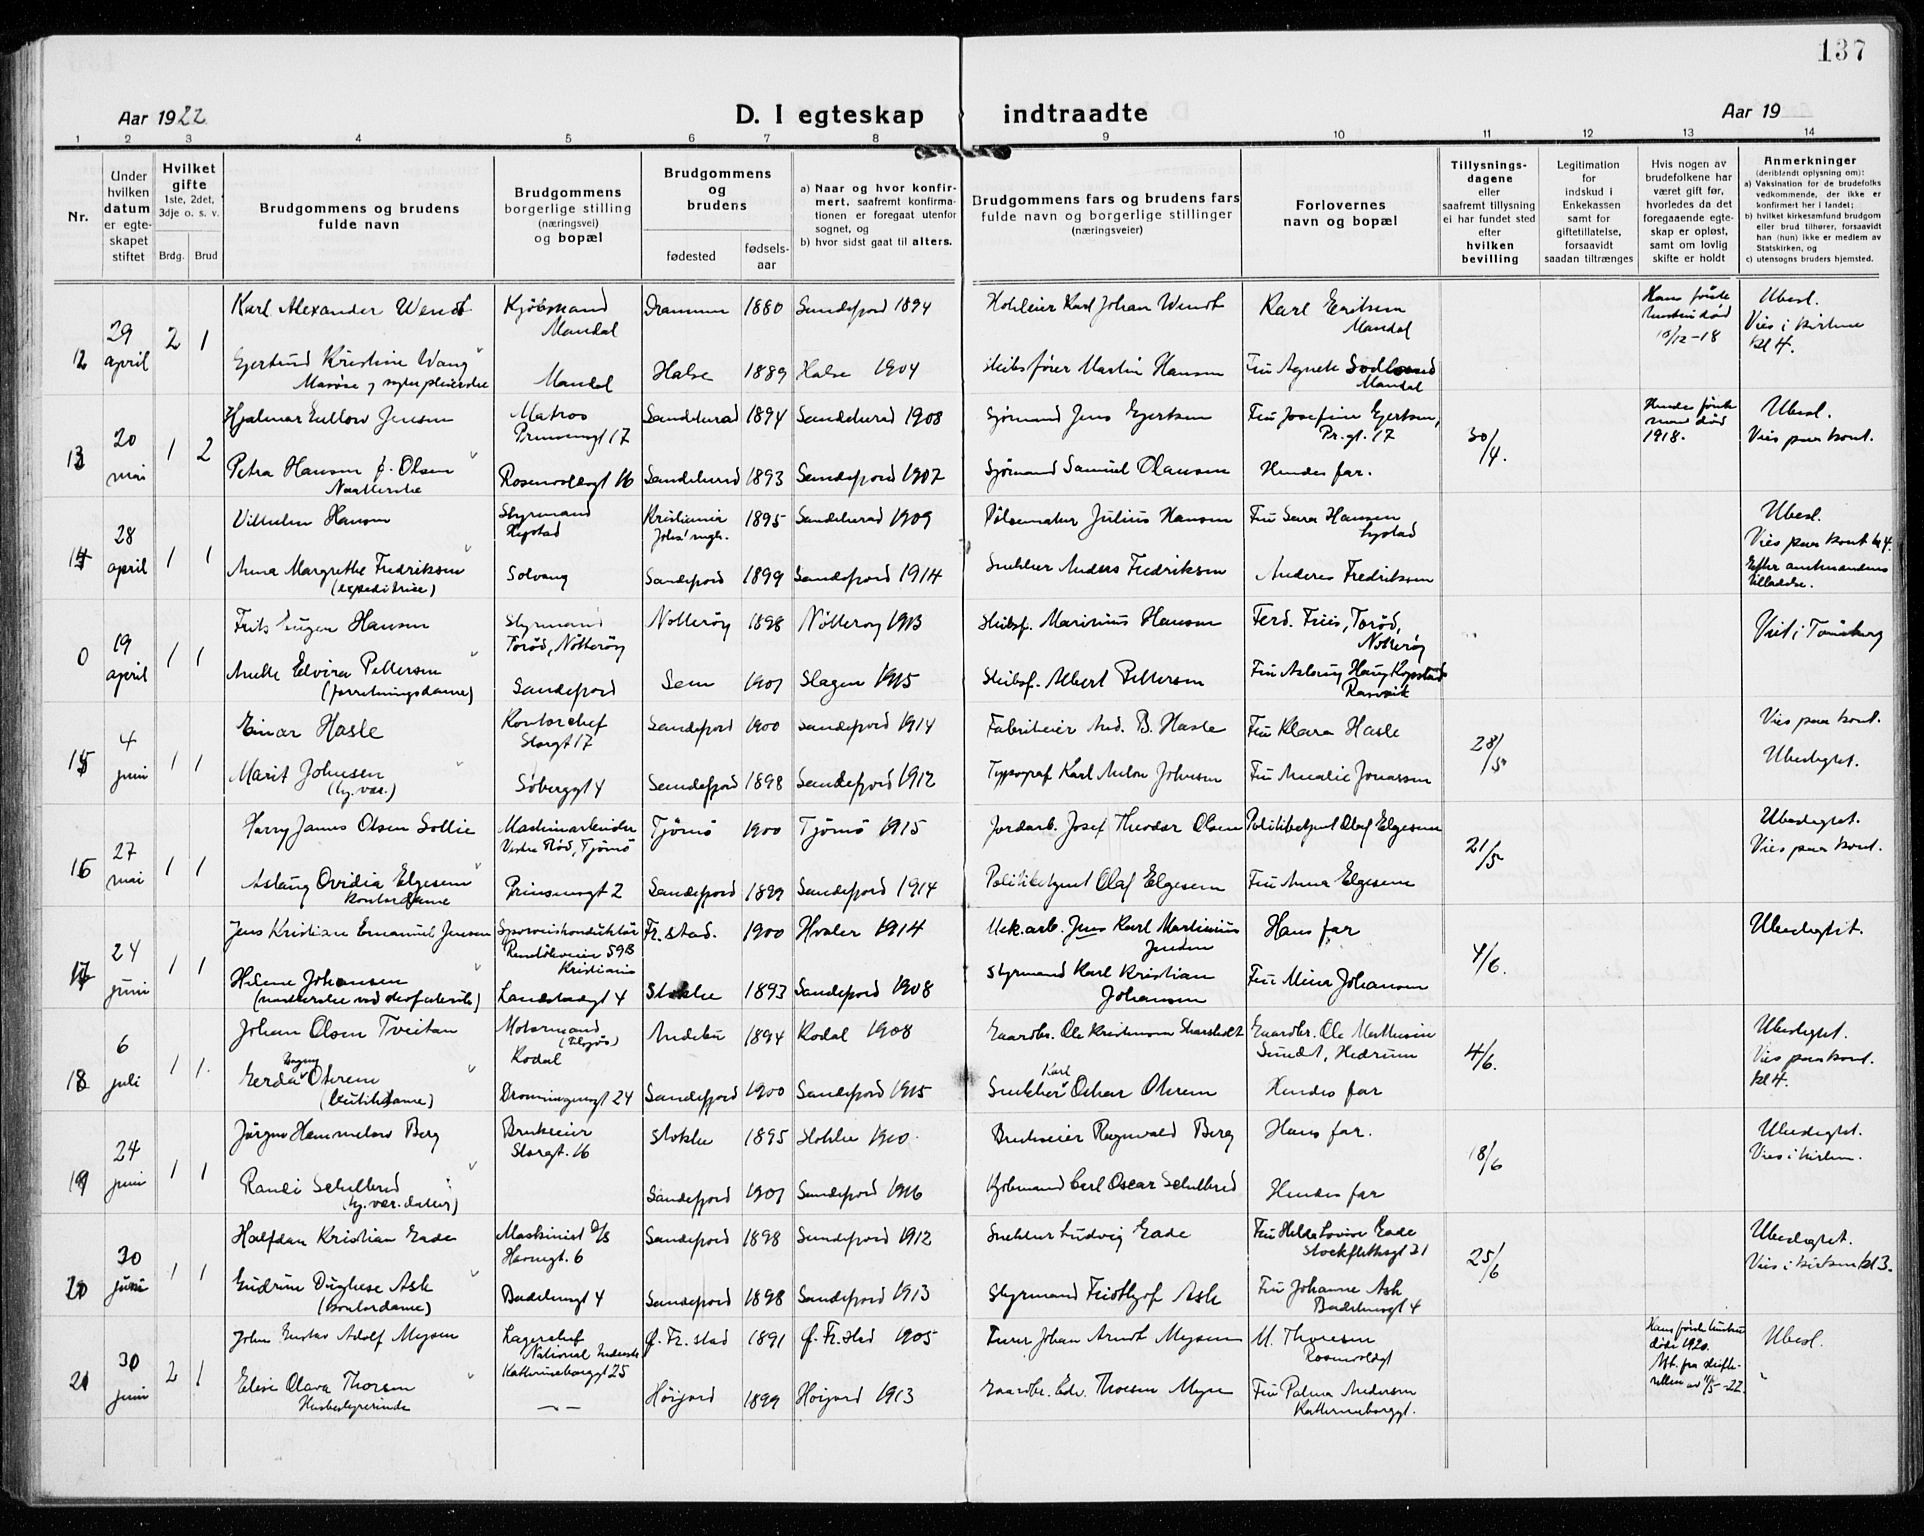 137
Aar 1922
D. I egteskap indtraadte
Aar 19
1 2 3 4 5 6 7 8 9 10 11 12 13 14
Nr.
Under
hvilken
datum
er egte-
skapet
stiftet
Hvilket
gifte
1ste, 2det,
3dje o. s. v.
Brdg. Brud
Brudgommens og brudens
fulde navn
Brudgommens
borgerlige stilling
(næringsvei)
og bopæl
Brudgommens
og
brudens
fødested
fødsels-
aar
a) Naar og hvor konfir-
mert, saafremt konfirma-
tionen er foregaat utenfor
sognet, og
b) hvor sidst gaat til alters.
Brudgommens fars og brudens fars
fulde navn og borgerlige stillinger
(næringsveier)
Forlovernes
navn og bopæl
Tillysnings-
dagene
eller
saafremt tillysning
ei har fundet sted
efter
hvilken
bevilling
Legitimation
for
indskud i
Enkekassen
samt for
giftetillatelse,
forsaavidt
saadan tiltrænges
Hvis nogen av
brudefolkene har
været gift før,
hvorledes da det
foregaaende egte-
skap er opløst,
samt om lovlig
skifte er holdt
Anmerkninger
(deriblandt oplysning om):
a) Vaksination for de brudefolks
vedkommende, der ikke er
konfirmert her i landet;
b) hvilket kirkesamfund brudgom
eller brud tilhører, forsaavidt
han (hun) ikke er medlem av
Statskirken, og
c) utensogns bruders hjemsted.
12 29 april 2 1
Karl Alexander Wendt Kjøbmand Mandal Drammen 1880 Sandefjord 1894 Karl Johan Wendt Karl Eriksen Mandal Hans første hustru død 10/12-18 Ubesl. Vies i kirken kl 4.
Gjertrud Kristine Wang Mandal Halse 1889 Halse 1904 Martin Hansen Fru Agnete Mandal
13 20 mai 1 2
Hjalmar Jensen Matros Prinsensgt 17 Sandeherad 1894 Sandeherad 1908 Sjømand Jens Gjertsen Fru Josefine Gjertsen, Pr.gt. 17 30/4. Hendes første mand død 1918. Ubesl. Vies paa kont.
Petra Hansen f. Olsen Rosenvoldsgt 16 Sandeherad 1893 Sandefjord 1907 Sjømand Samuel Olausen Hendes far.
14 28 april 1 1
Vilhelm Hansen Styrmand Kristiania 1895 Sandeherad 1909 Pølsemaker Julius Hansen Fru Sara Hansen Ubesl. Vies paa kont. kl 4. Efter amtmandens tilladelse.
Anna Margrethe Fredriksen (expeditrice) Solvang Sandefjord 1899 Sandefjord 1914 Snekker Anders Fredriksen Anders Fredriksen
0 19 april 1 1
Frits Eugen Hansen Styrmand Torød, Nøtterøy Nøtterøy 1898 Nøtterøy 1913 Skibsf. Marinius Hansen Ferd. Friis, Torød, Nøtterøy Viet i Tønsberg
Anette Elvira Pettersen (forretningsdame) Sandefjord Sem 1901 Slagen 1915 Skibsf. Albert Pettersen Fru Aslaug Haug
15 4 juni 1 1
Einar Hasle Kontorchef Storgt 17 Sandefjord 1900 Sandefjord 1914 Fabrikeier And. B. Hasle Fru Klara Hasle 28/5 Vies paa kont.
Marit Johnsen (hj. vær.) Søberggt 4 Sandefjord 1898 Sandefjord 1912 Typograf Karl Anton Johnsen Fru Amalie Jonassen Ubeslegtet.
16 27 mai 1 1
Harry James Olsen Sollie Maskinarbeider Vestre Rød, Tjømø Tjømø 1900 Tjømø 1915 Jordarb. Josef Theodor Olsen Politibetjent Olaf Elgesem 21/5 Ubeslegtet. Vies paa kont.
Aslaug Ovidia Elgesem kontordame Prinsensgt 2 Sandefjord 1899 Sandefjord 1914 Politibetjent Olaf Elgesem Fru Anna Elgesem
17 24 juni 1 1
Jens Kristian Emanuel Jensen Sporveiskonduktør 59B Kristiania Fr.stad. 1900 Hvaler 1914 Jens Karl Martinius Jensen Hans far 4/6. Ubeslegtet.
Helene Johansen Landstadsgt 4 Stokke 1893 Sandefjord 1908 Styrmand Karl Kristian Johansen Fru Mina Johansen
18 6 juli 1 1.
Johan Olsen Tveitan Motormand Kodal Andebu 1894 Kodal 1908 Gaardbr. Ole Kristensen Gaardbr. Ole Mathisen Sundet, Hedrum 4/6. Ubeslegtet. Vies paa kont. kl 4.
Gerda Dagny Othrem (butikdame) Dronningensgt 24 Sandefjord 1900 Sandefjord 1915 Snekker Karl Oskar Othrem Hendes far
19 24 juni 1 1
Jørgen Hammelow Berg Brukseier Storgt. 16 Stokke 1895 Stokke 1910 Brukseier Ragnvald Berg Hans far. 18/6 Ubeslegtet. Vies i kirken.
Randi Schelbred (hj. vær. datter) Sandefjord 1901 Sandefjord 1916 Kjøbmand Carl Oscar Schelbred Hendes far
20 30 juni 1 1
Halfdan Kristian Gade Maskinist Havnegt. 6 Sandefjord 1898 Sandefjord 1912 Snekker Ludvig Gade Fru Hilda Lovise Gade Stockflethsgt 31 25/6 Ubeslegtet. Vies i kirken kl 3.
Gudrun Ask (kontordame) Badehusgt 4 Sandefjord 1898 Sandefjord 1913 Styrmand Fridthjof Ask Fru Johanne Ask Badehusgt 4
21 30 juni 2 1
John Gustav Adolf Mysen Lagerchef National Industri Kathrineborggt 25 Ø. Fr.stad 1891 Ø. Fr.stad 1905 Johan Arndt Mysen M. Thoresen Rosenvoldgt Hans første hustru døde 1920. Att. fra skifteretten av 11/5-22. Ubesl.
Elise Olava Thorsen Husbestyrerinde Høijord 1899 Høijord 1913 Gaardbr. Edv. Thorsen Myre Fru Palma Andersen Kathrineborggt.